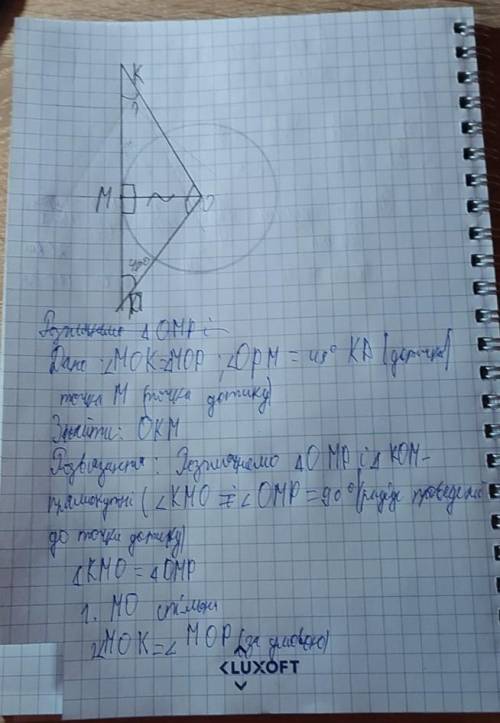 K
?
M
O
P
Розглянемо △OMP і
Дано: ∠MOK=∠MOP; ∠OPM = KP (дотична)
точка M (точка дотику)
Знайти: OKM
Розвязання: Розглянемо △OMP і △KOM-
прямокутні (∠KMO і ∠OMP =90° (радіус проведений
до точки дотику)
△KMO = △OMP
1. MO спільна
∠MOK=∠MOP (за умовою)
LUXOFT